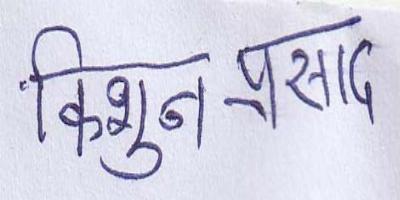 किशुन प्रसाद